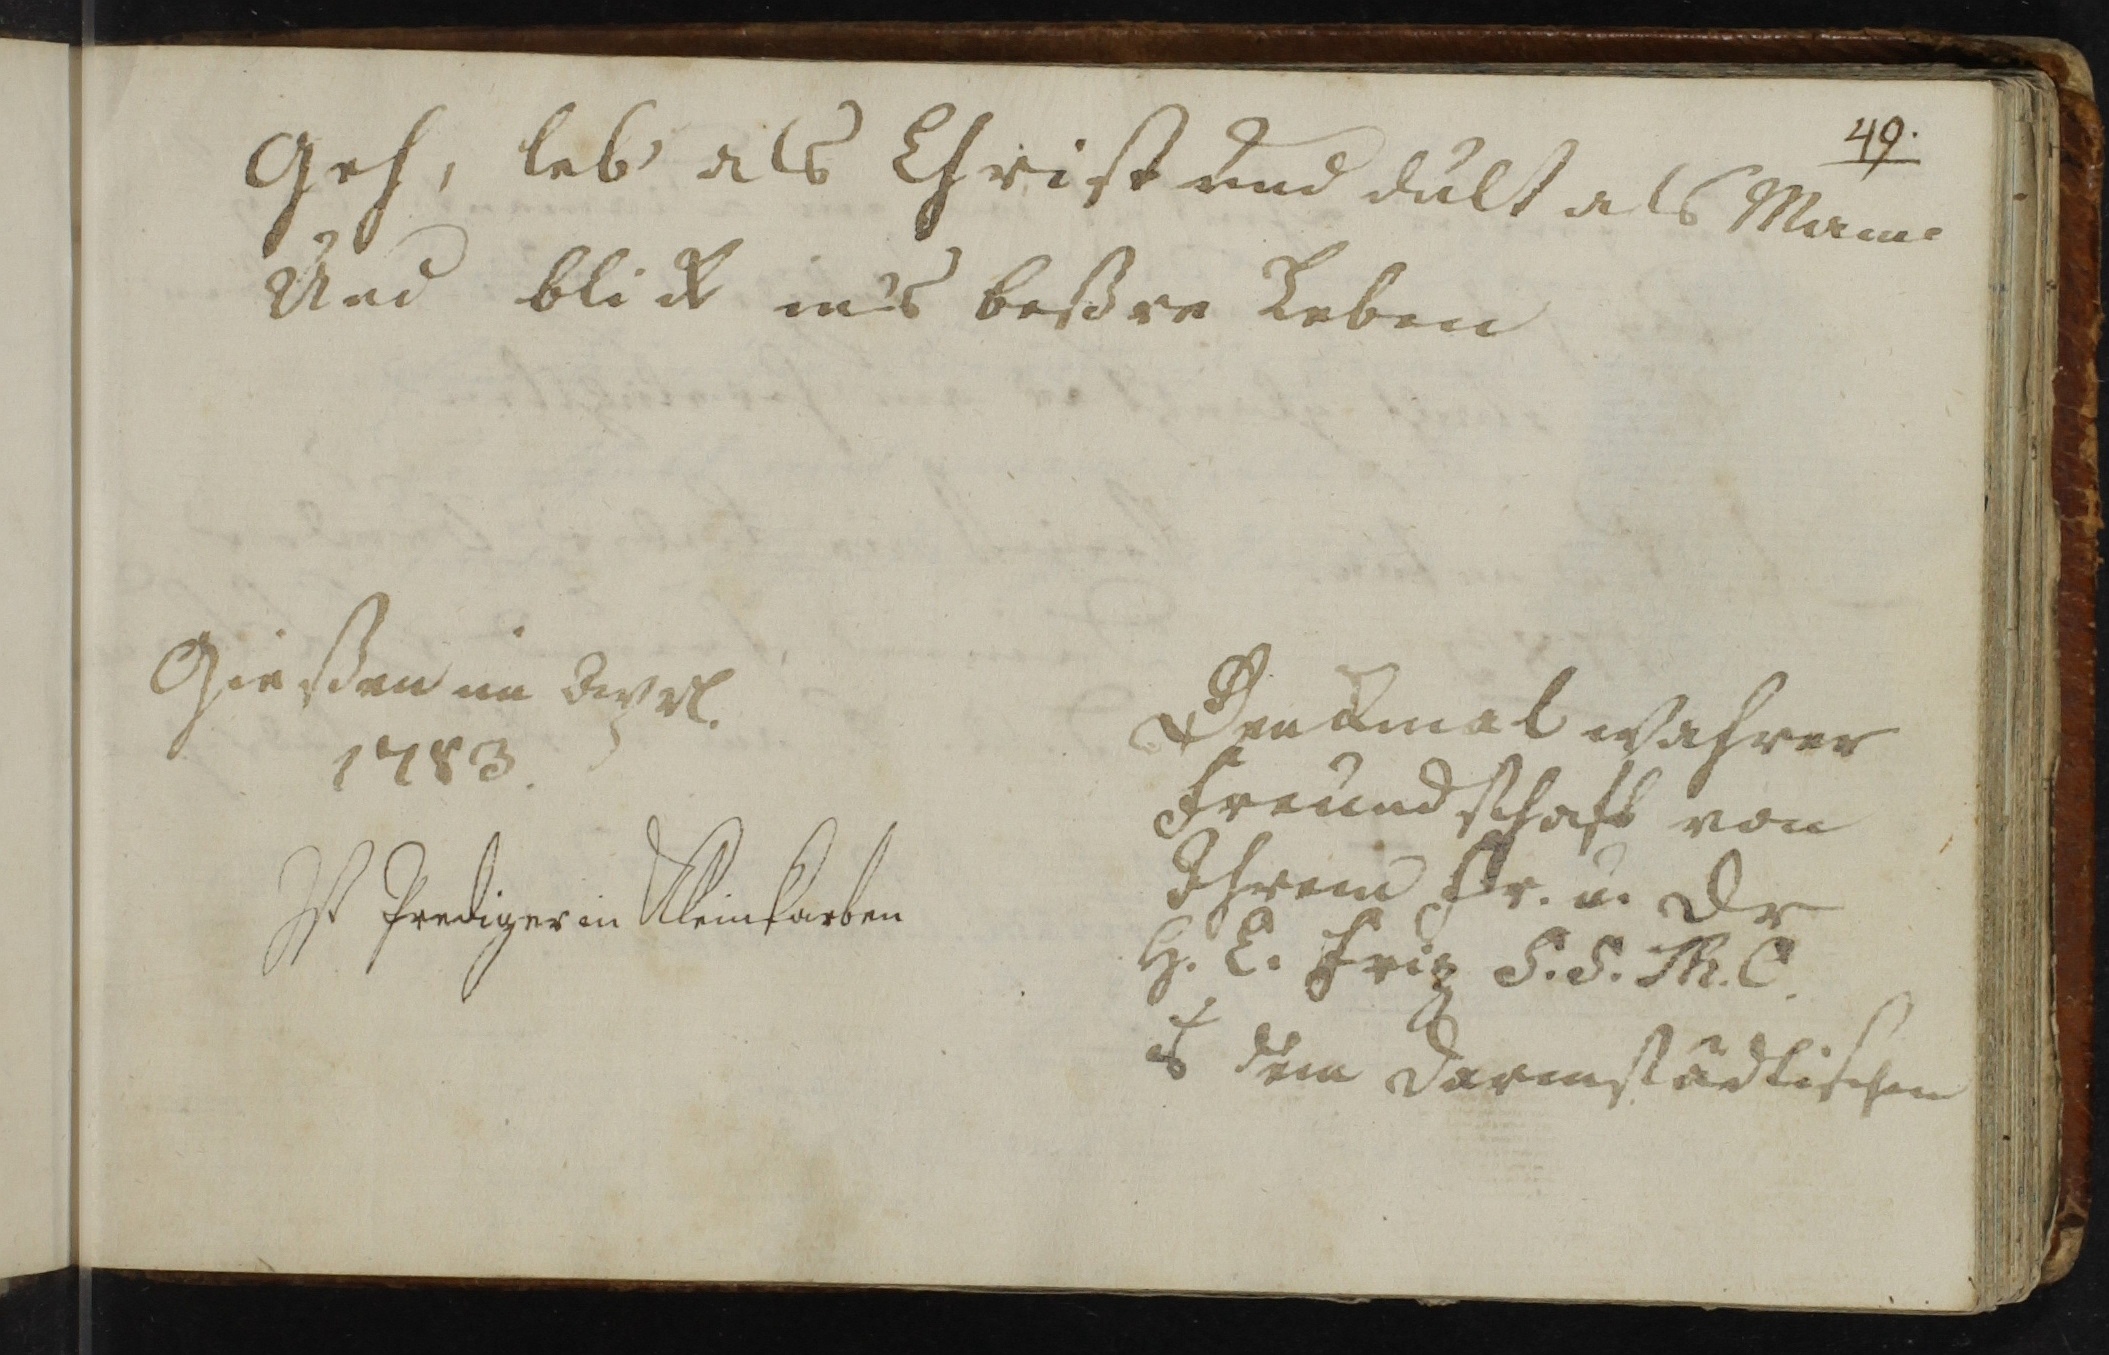 49.
Geh, leb' als Christ und dult als Mann
Und blick ins beßre Leben
Gießen im Aprl.
1783.
Ist Prediger in Kleinkarben
Denkmal wahrer
Freundschaft von
Ihrem Fr. u. Dr
H. C. Friz S. S. Th. C.
aus dem Darmstädtischen